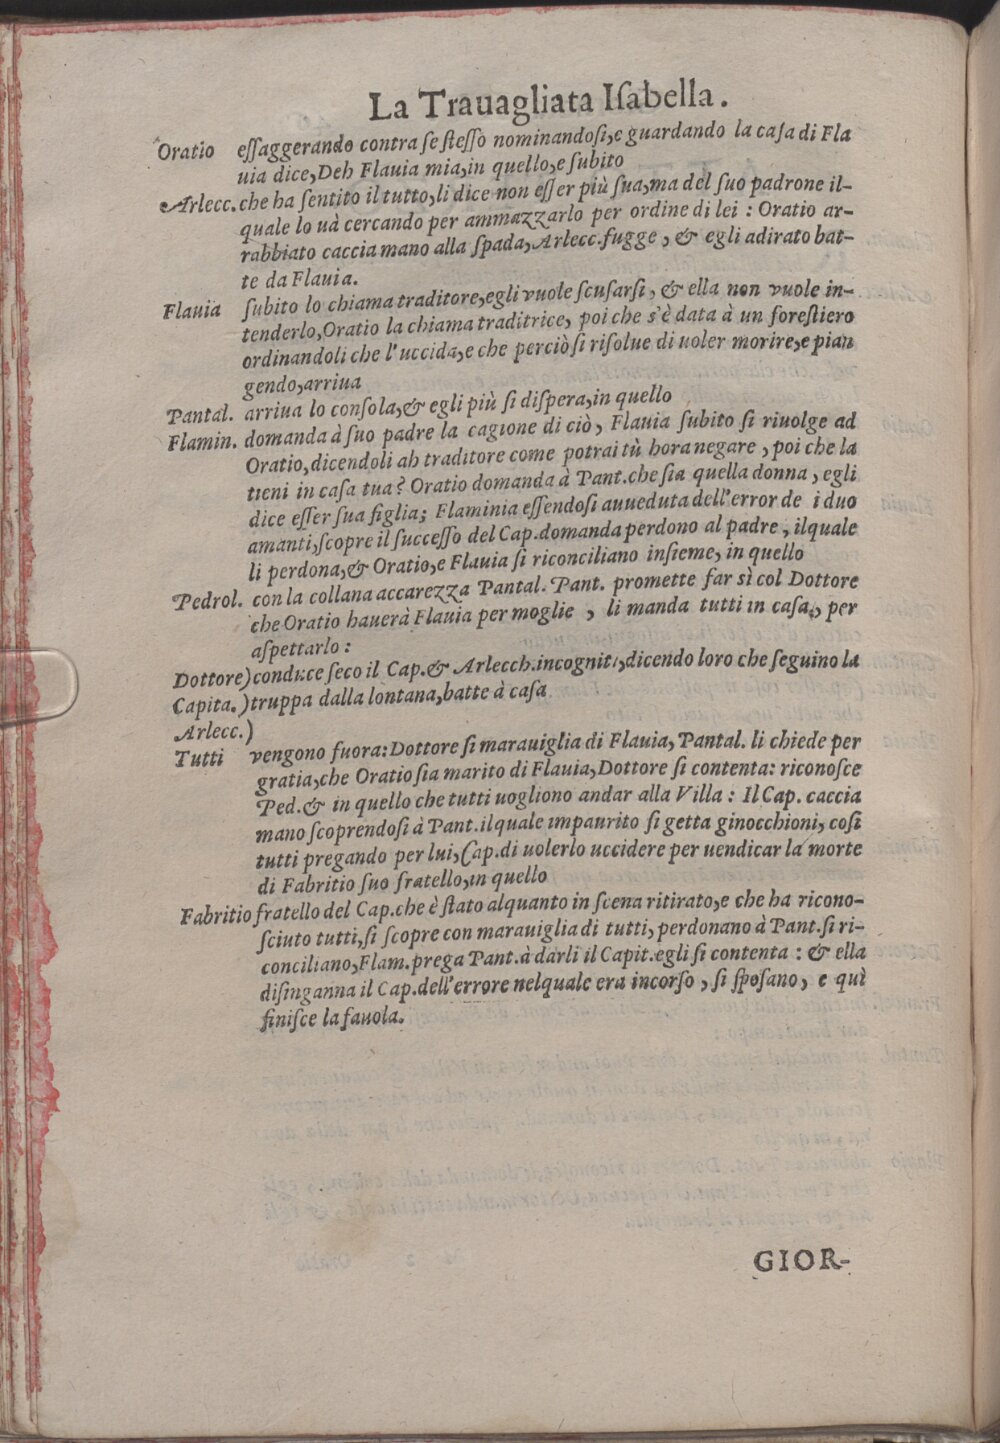 La Trauagliata Iſabella.
Oratio eſſaggerando contra ſe ſteſſo nominandoſi,e guardando la caſa di Fla
uia dice,Deh Flauia mia,in quello,e ſubito
Arlecc.che ha ſentito il tutto,li dice non eſſer più ſua,ma del ſuo padrone il-
quale lo uà cercando per ammazzarlo per ordine di lei : Oratio ar-
rabbiato caccia mano alla ſpada, Arlecc.fugge , & egli adirato bat-
te da Flauia.
Flauia ſubito lo chiama traditore,egli vuole ſcuſarſi , & ella non vuole in-
tenderlo,Oratio la chiama traditrice, poi che s'è data à un foreſtiero
ordinandoli che l'uccida,e che perciò ſi riſolue di uoler morire,e pian
gendo,arriua
Pantal. arriua lo conſola,& egli più ſi diſpera,in quello
Flamin. domanda à ſuo padre la cagione di ciò , Flauia ſubito ſi riuolge ad
Oratio,dicendoli ah traditore come potrai tù hora negare , poi che la
tieni in caſa tua? Oratio domanda à Pant.che ſia quella donna , egli
dice eſſer ſua figlia; Flaminia eſſendoſi auueduta dell'error de i duo
amanti,ſcopre il ſucceſſo del Cap.domanda perdono al padre , ilquale
li perdona,& Oratio,e Flauia ſi riconciliano inſieme, in quello
Pedrol. con la collana accarezza Pantal. Pant. promette far sì col Dottore
che Oratio hauerà Flauia per moglie , li manda tutti in caſa, per
aſpettarlo :
Dottore)conduce ſeco il Cap.& Arlecch.incogniti,dicendo loro che ſeguino la
Capita.)truppa dalla lontana,batte à caſa
Arlecc.)
Tutti vengono fuora:Dottore ſi marauiglia di Flauia, Pantal. li chiede per
gratia,che Oratio ſia marito di Flauia,Dottore ſi contenta: riconoſce
Ped.& in quello che tutti uogliono andar alla Villa : Il Cap. caccia
mano ſcoprendoſi à Pant.il quale impaurito ſi getta ginocchioni, coſi
tutti pregando per lui,Cap.di uolerlo uccidere per uendicar la morte
di Fabritio ſuo fratello,in quello
Fabritio fratello del Cap.che è ſtato alquanto in ſcena ritirato,e che ha ricono-
ſciuto tutti,ſi ſcopre con marauiglia di tutti, perdonano à Pant.ſi ri-
conciliano,Flam.prega Pant.à darli il Capit.egli ſi contenta : & ella
diſinganna il Cap.dell'errore nelquale era incorſo , ſi ſpoſano, e quì
finiſce la fauola.
GIOR-